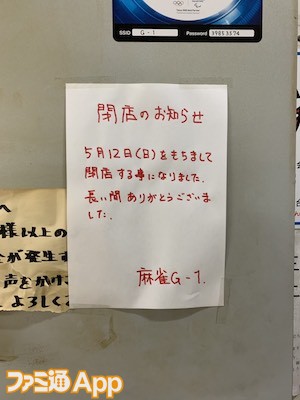 SSID G-1 Password 39853574
閉店のお知らせ
5月12日(日)をもちまして
閉店する事になりました。
長い間ありがとうございま
した。
麻雀G-1.
へ
様以上の
が発生す
声をかけ
よろしく
ファミ通App